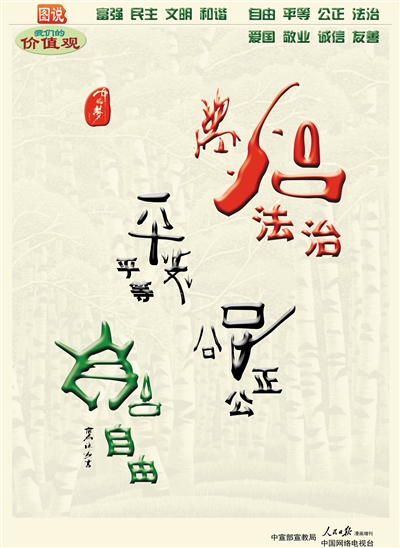 图说
我们的
价值观
富强 民主 文明 和谐 自由 平等 公正 法治
爱国 敬业 诚信 友善
法治
平等
公正
自由
中宣部宣教局 人民日报 漫画增刊
中国网络电视台